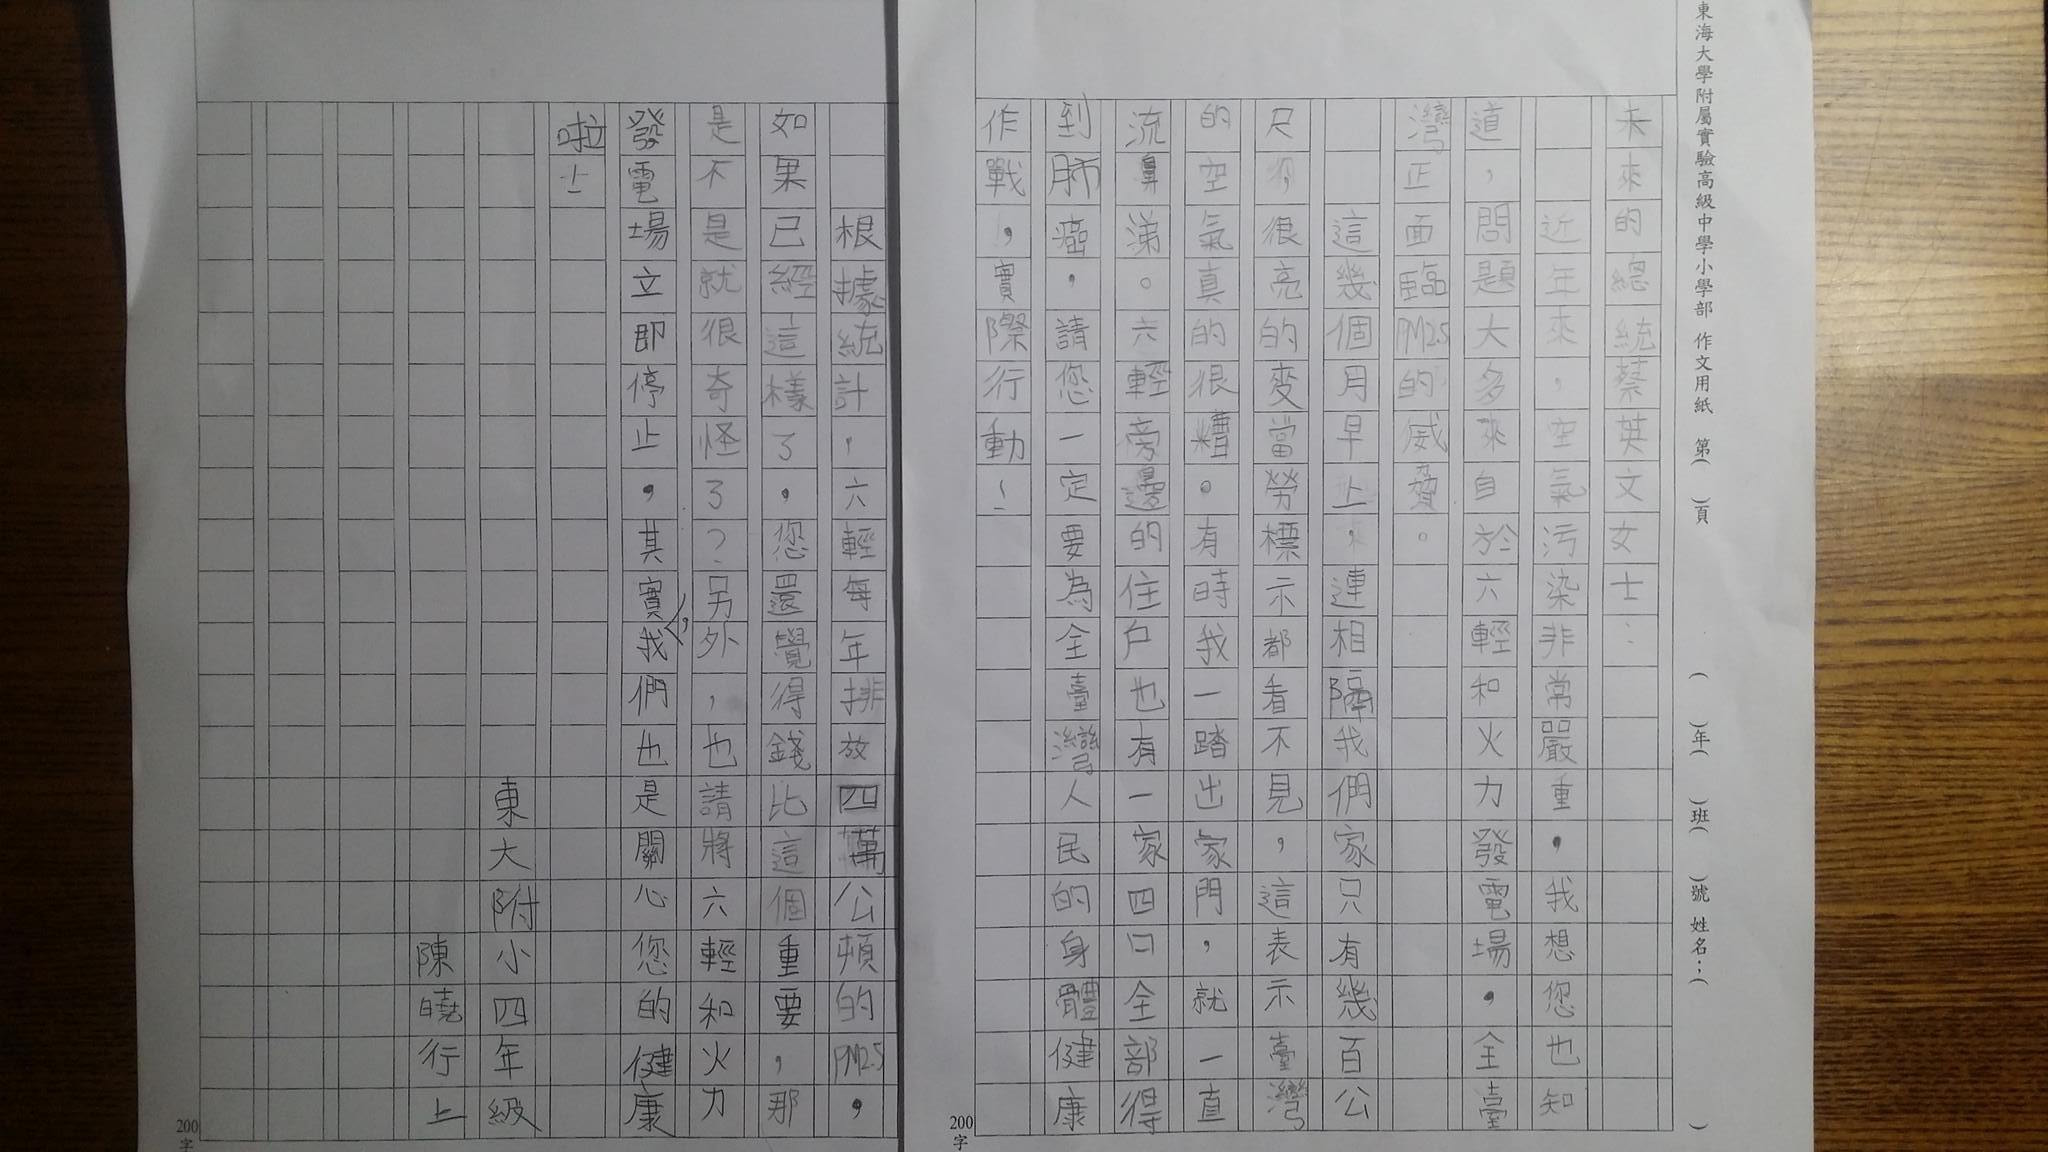 東海大學附屬實驗高級中學小學部 作文用紙 第( )頁 ( )年( )班( )號 姓名:( )
未來的總統蔡英文女士:
近年來,空氣污染非常嚴重,我想您也知
道,問題大多來自於六輕和火力發電場,全臺
灣正面臨PM2.5的威脅。
這幾個月早上,連相隔我們家只有幾百公
尺,很亮的麥當勞標示都看不見,這表示臺灣
的空氣真的很糟。有時我一踏出家門,就一直
流鼻涕。六輕旁邊的住戶也有一家四口全部得
到肺癌,請您一定要為全臺灣人民的身體健康
作戰,實際行動!
200字
根據統計,六輕每年排放四萬公頓的PM2.5,
如果已經這樣了,您還覺得錢比這個重要,那
是不是就很奇怪了?另外,也請將六輕和火力
發電場立即停止,其實,我們也是關心您的健康
啦!
東大附小四年級
陳曉行上
200字